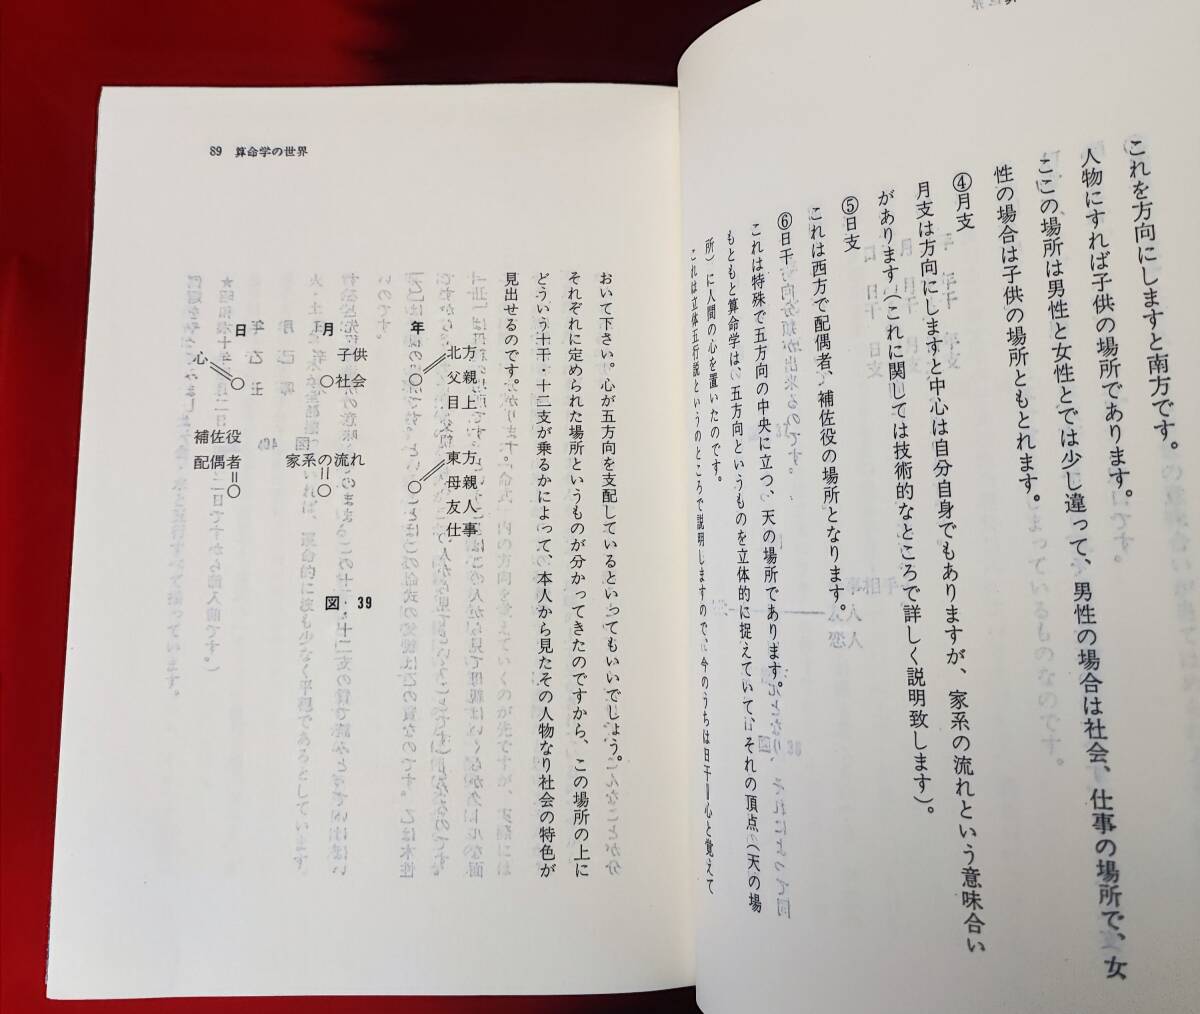 これを方向にしますと南方です。
人物にすれば子供の場所であります。
ここの場所は男性と女性とでは少し違って、男性の場合は社会、仕事の場所で、女
性の場合は子供の場所ともとれます。
④月支
月支は方向にしますと中心は自分自身でもありますが、家系の流れという意味合い
があります(これに関しては技術的なところで詳しく説明致します)。
⑤日支
これは西方で配偶者、補佐役の場所となります。
⑥日干
これは特殊で五方向の中央に立つ、天の場所であります。
もともと算命学は、五方向というものを立体的に捉えていて、それの頂点(天の場
所)に人間の心を置いたのです。
これは立体五行説というのところで説明しますので、今のうちは日干=心と覚えて
89 算命学の世界
おいて下さい。心が五方向を支配しているといってもいいでしょう。
それぞれに定められた場所というものが分かってきたのですから、この場所の上に
どういう十干・十二支が乗るかによって、本人から見たその人物なり社会の特色が
見出せるのです。
年
北方
父親
目上
○
東方
母親
友人
仕事
○
月
子供
社会
○
家系の流れ
○
日
心
○
補佐役
配偶者
○
図 39